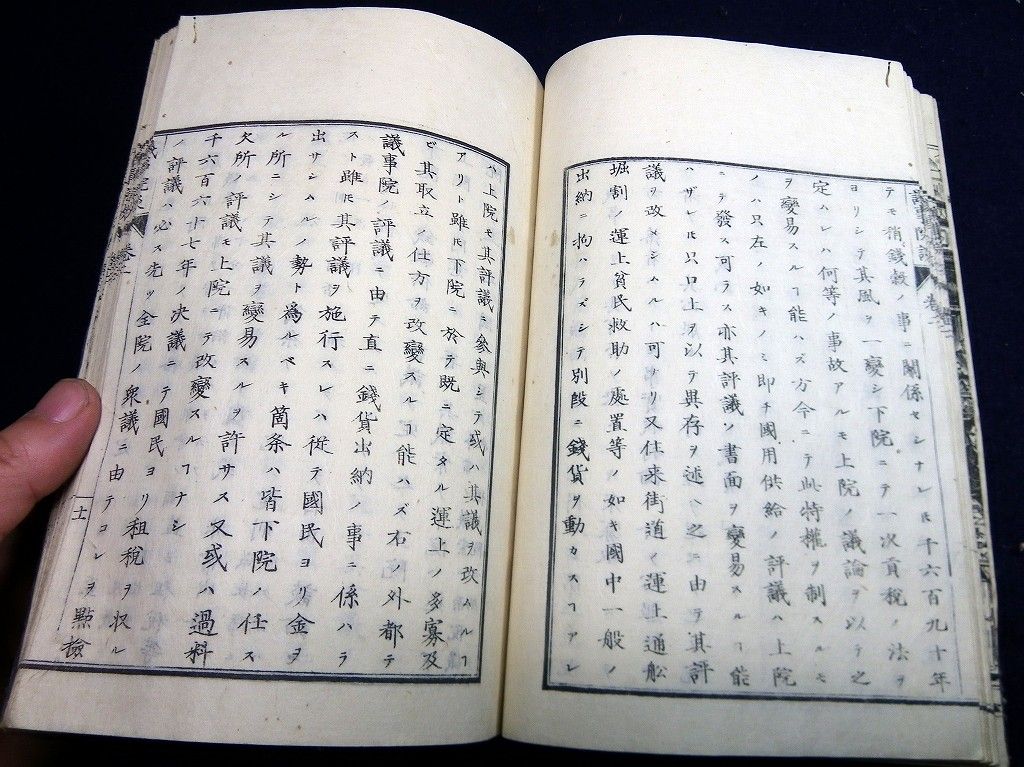 テモ稍錢穀ノ事ニ關係セシナレ𪜈千六百九十年
ヨリシテ其風ヲ一變シ下院ニテ一次貢税ノ法ヲ
定ムレハ何等ノ事故アルモ上院ノ議論ヲ以テ之
ヲ變易スルヿ能ハズ方今ニテ此特權ヲ制スルモ
ノハ只左ノ如キノミ即チ國用供給ノ評議ハ上院
ニテ發ス可ラス亦其評議ノ書面ヲ變易スヿ能
ハザレ𪜈只口上ヲ以テ異存ヲ述ヘ之ニ由テ其評
議ヲ改メシムルハ可ナリ又往来街道ノ運上通舩
堀割ノ運上貧民救助ノ處置等ノ如キ國中一般ノ
出納ニ拘ハラズシテ別段ニ錢貨ヲ動カスヿアレ
ハ上院モ其評議ニ參與シテ或ハ其議ヲ改ムルヿ
アリト雖𪜈下院ニ於テ既ニ定タル運上ノ多寡及
ビ其取立ノ仕方ヲ改變スルヿ能ハズ右ノ外都テ
議事院ノ評議ニ由テ直ニ錢貨出納ノ事ニ係ハラ
スト雖𪜈其評議ヲ施行スレハ從テ國民ヨリ金ヲ
出サシムルノ勢ト為ルベキ箇条ハ皆下院ノ任ス
ル所ニシテ其議ヲ變易スルヲ許サス又或ハ過料
欠所ノ評議モ上院ニテ改變スルヿナシ
千六百六十七年ノ決議ニテ國民ヨリ租税ヲ収ル
ノ評議ハ必ス先ツ全院ノ衆議ニ由テコレヲ點檢
卷二
十一